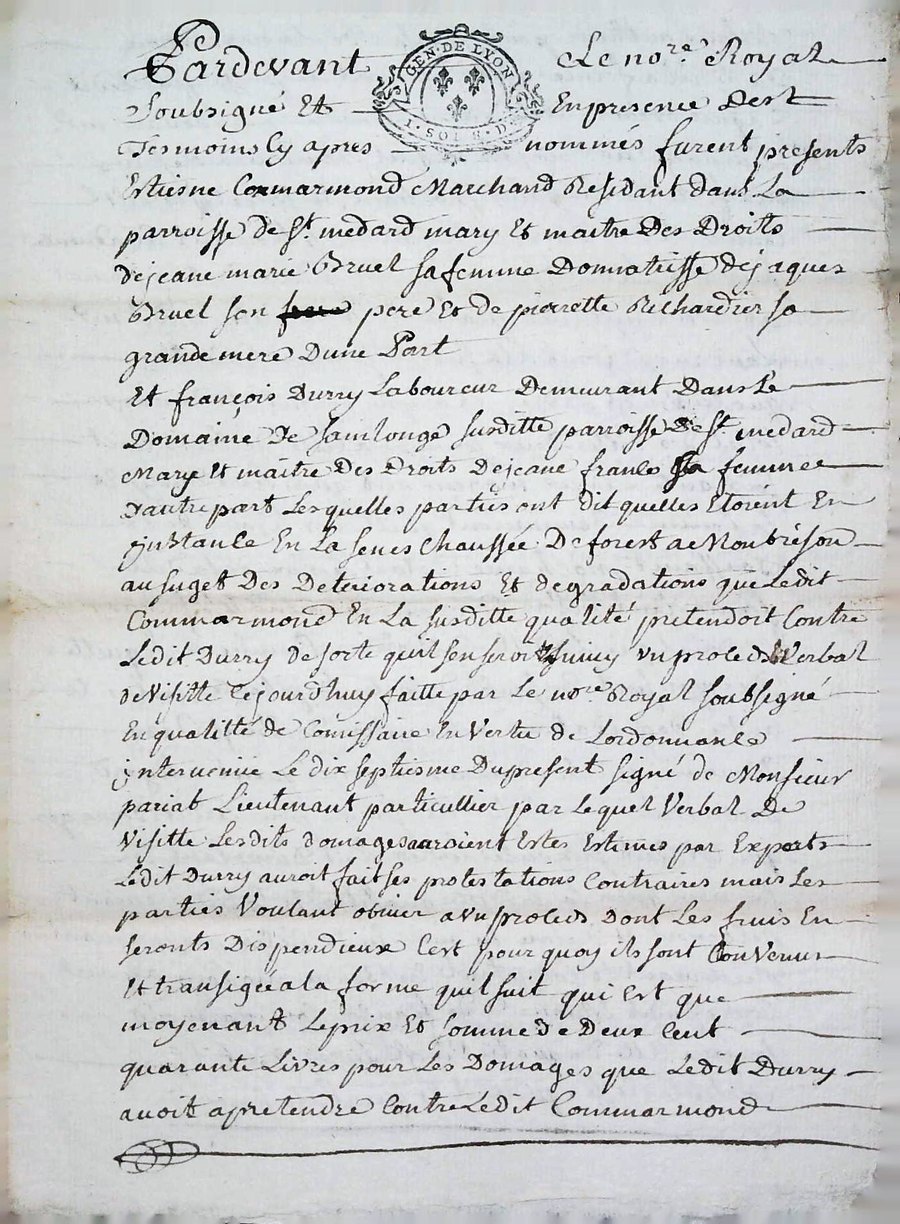 Pardevant Le nore Royal
GEN·DE LYON
Soubsigné Et En presence Dest
1·SOL 8·D
Tesmoins Cy apres nommés furent presents
Estiesne Commarmond Marchand Residant dans La
parroisse de St medard mary Et maitre Des Droits
dejeane marie Bruel sa femme Donnatrisse dejaques
Bruel son frere pere Et de pierrette Richardier sa
grande mere Dune Part
Et françois Durry Laboureur Demeurant Dans Le
Domaine De Samlonge susditte parroisse de St medard
Mary Et maitre Des Droits Dejeane france sa femme
Dautre part Lesquelles parties ont dit quelles Etoient En
instance En La senechaussée De forest a Montbrison
au suget Des Deteriorations Et degradations que Ledit
Commarmond En La susditte qualité pretendoit Contre
Ledit Durry de sorte quil sen seroit suivy un proces Verbal
de Visitte Cejourdhuy faitte par Le nore Royal soubsigné
En qualitté de Comissaire En Vertu de Lordonnance
intervenue Le dix septiesme Du present signé de Monsieur
pariat Lieutenant particullier par Lequel Verbal De
Visitte Lesdits domages auroient Estes Estimes par Experts
Ledit Durry auroit fait ses protestations Contraires mais Les
parties Voulant obvier a un proces Dont Les frais En
seronts Dispendieux Cest pourquoy ils sont Convenus
Et transigée a la forme quil suit qui Est que
moyenant Le prix Et somme de Deux Cent
quarante Livres pour Les Domages que Ledit Durry
avoit a pretendre Contre Ledit Commarmond